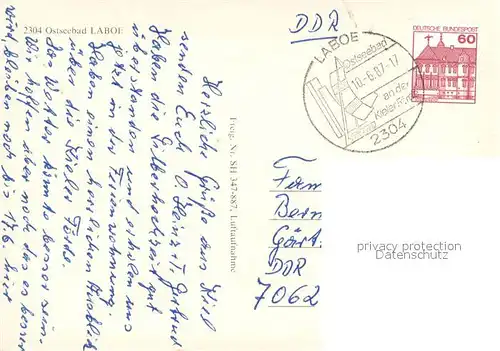 2304 Ostseebad LABOE
Herzliche Grüße aus Kiel
senden Euch O. Heinz + T. Gertrud
Haben die Silberhochzeit gut
überstanden und erholen uns
jetzt in der Ferienwohnung.
Haben einen herrlichen Ausblick
über die Kieler Förde.
Das Wetter könnte besser sein.
Wir hoffen aber noch das es besser
wird, bleiben noch bis 17.6. hier
Freig. Nr. SH 347-887, Luftaufnahme
DDR
LABOE
Ostseebad
10.-6.87-17
an der
Kieler Förde
2304
DEUTSCHE BUNDESPOST
60
Fam
Bern
Gärt.
DDR
7062
privacy protection
Datenschutz